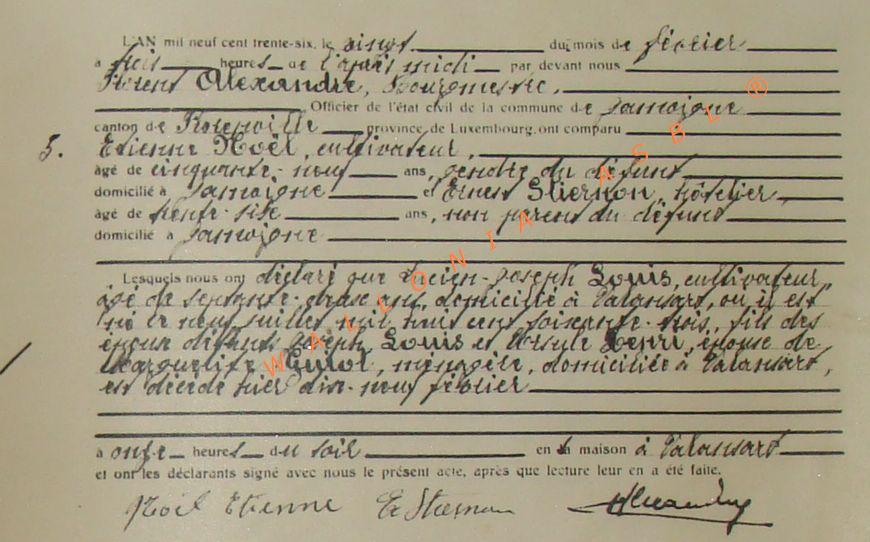 L'AN mil neuf cent trente-six, le vingt du mois de février
à trois heures de l'après midi par devant nous
Florent Alexandre, Bourgmestre,
Officier de l'état civil de la commune de Jamoigne
canton de province de Luxembourg, ont comparu
5. Etienne Noël, cultivateur,
âgé de cinquante-neuf ans, gendre du défunt
domicilié à Jamoigne et Ernest Stiernon, hôtelier,
âgé de trente-six ans, non parent du défunt
domicilié à Jamoigne
Lesquels nous ont déclaré que Lucien-Joseph Louis, cultivateur,
âgé de septante-deux ans, domicilié à Valansart, où il est
né le neuf juillet mil huit cent soixante-trois, fils des
époux défunts Joseph Louis et Ursule Henri, époux de
Marguerite Guiot, ménagère, domiciliée à Valansart,
est décédé hier dix-neuf février
à onze heures du soir en sa maison à Valansart
et ont les déclarants signé avec nous le présent acte, après que lecture leur en a été faite.
Noël Etienne E Stiernon Alexandre
WALLONIA ASBL ®